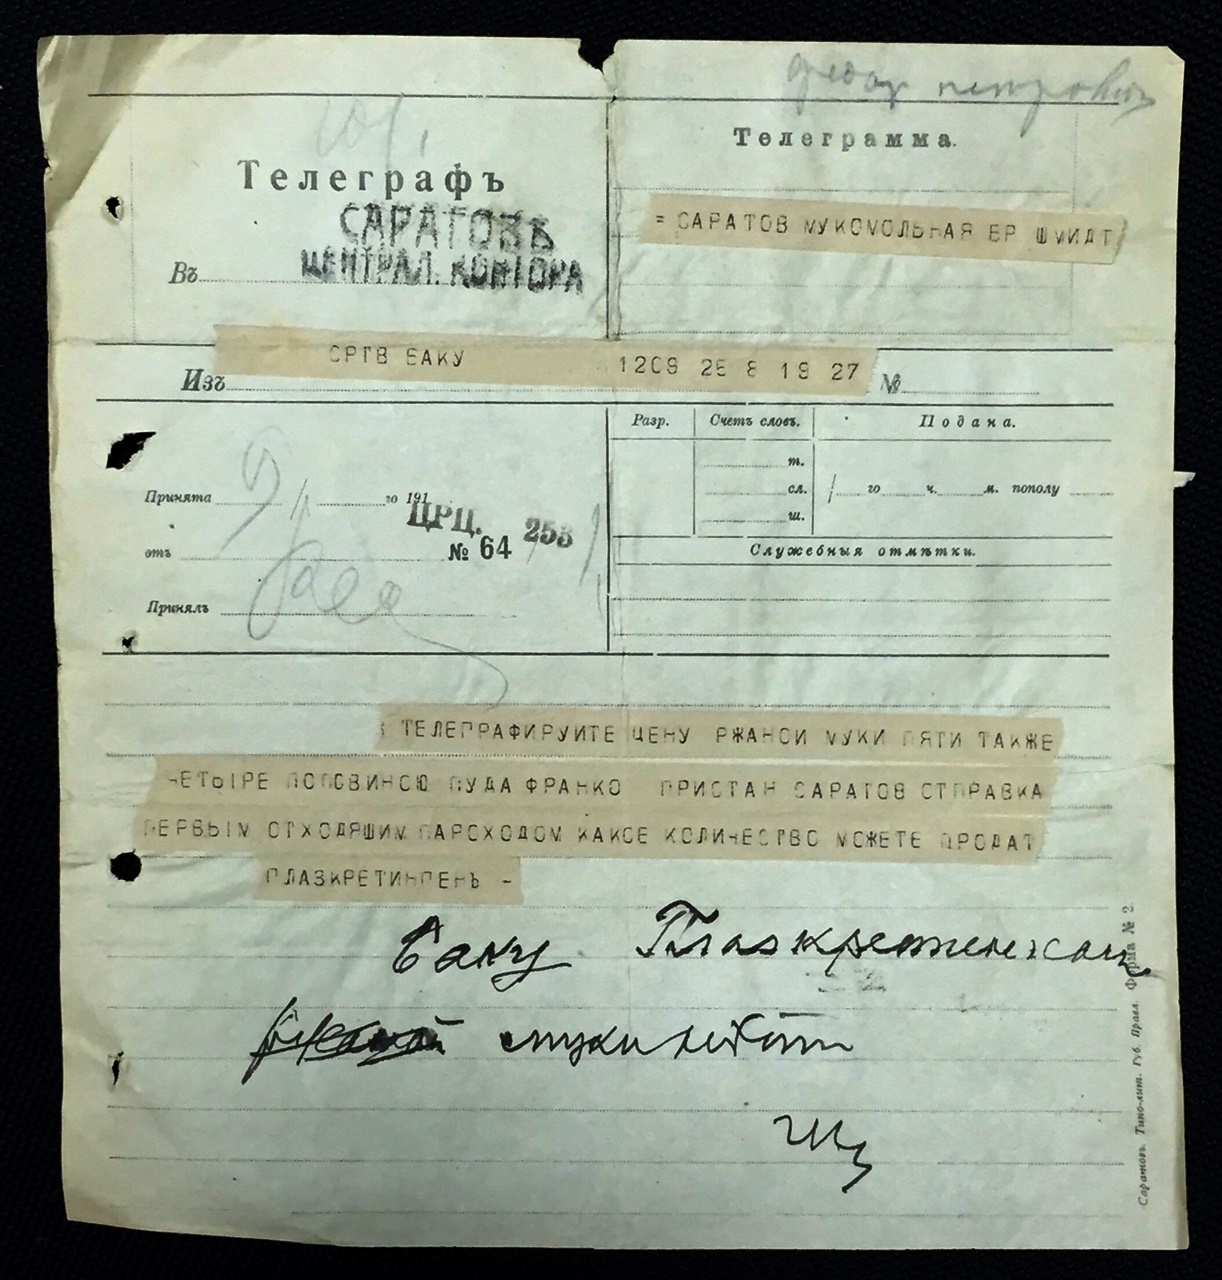 Ѳедор Петрович
Телеграмма.
Телеграфъ
САРАТОВЪ
ЦЕНТРАЛ. КОНТОРА
Въ
= САРАТОВ МУКОМОЛЬНАЯ БР ШМИДТ
СРТВ БАКУ 1209 25 8 19 27
Изъ №
Разр. Счетъ словъ. Подана.
т.
сл.
ш.
го ч. м. пополу
Принята го 191
ЦРЦ. 253
№ 64
отъ
Служебныя отмѣтки.
Принялъ
ТЕЛЕГРАФИРУИТЕ ЦЕНУ РЖАНОИ МУКИ ПЯТИ ТАКЖЕ
ЧЕТЫРЕ ПОЛОВИНОЮ ПУДА ФРАНКО ПРИСТАН САРАТОВ ОТПРАВКА
ПЕРВЫМ ОТХОДЯШИМ ПАРОХОДОМ КАКОЕ КОЛИЧЕСТВО МОЖЕТЕ ПРОДАТ
ПЛАЗКРЕТИНПЕНЬ -
Баку
муки
Форма № 2.
Саратовъ. Типо-лит. Губ. Правл.